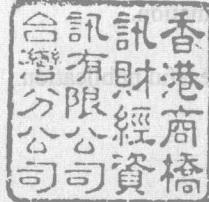 香港商橋
訊財經資
訊有限公司
台灣分公司